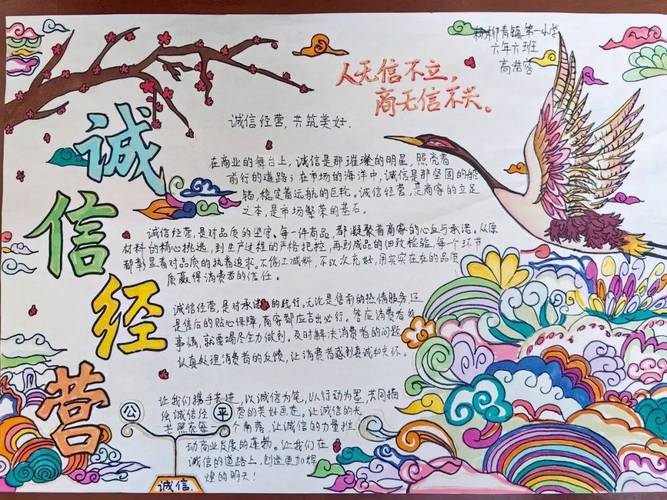 杨柳青镇第一小学
六年六班
高浩
人无信不立，
商无信不兴。
诚信经营
诚信经营，共筑美好.
在商业的舞台上，诚信是那璀璨的明星，照亮着
前行的道路；在市场的海洋中，诚信是那坚固的船
锚，稳定着远航的巨轮。诚信经营，是商家的立足
之本，是市场繁荣的基石。
诚信经营，是对品质的坚守。每一件商品，都凝聚着商家的心血与承诺。从原
材料的精心挑选，到生产过程的严格把控，再到成品的细致检验，每个环节
都彰显着对品质的执着追求。不偷工减料，不以次充好，用实实在在的品质
质赢得消费者的信任。
诚信经营，是对承诺的践行。无论是售前的热情服务，还
是售后的贴心保障，商家都应言出必行。答应消费者的
事情，就要竭尽全力做到，及时解决消费者的问题，
认真处理消费者的反馈，让消费者感到真诚和关怀。
让我们携手共进，以诚信为笔，以行动为墨，共同描
绘诚信经营的美好画卷，让诚信的光
芒照亮每一个角落，让诚信的力量推
动商业发展的蓬勃。让我们在
诚信的道路上，创造更加辉
煌的明天！
公 平
诚信